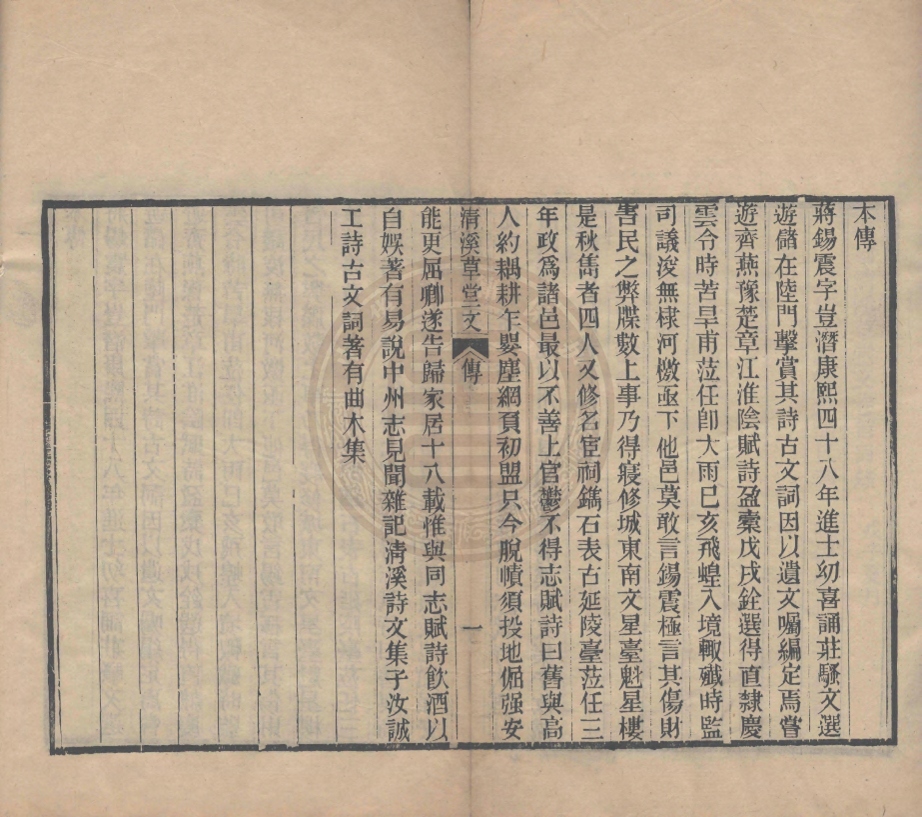 本傳
蔣錫震字豈潛康熙四十八年進士幼喜誦莊騷文選
遊儲在陸門擊賞其詩古文詞因以遺文囑編定焉嘗
遊齊燕豫楚章江淮陰賦詩盈橐戊戌銓選得直隸慶
雲令時苦旱甫蒞任卽大雨巳亥飛蝗入境輙殲時監
司議浚無棣河檄亟下他邑莫敢言錫震極言其傷財
害民之弊牒數上事乃得寢修城東南文星臺魁星樓
是秋雋者四人又修名宦祠鐫石表古延陵臺蒞任三
年政爲諸邑最以不善上官鬱不得志賦詩曰舊與高
人約耦耕乍嬰塵網負初盟只今脫幘須投地倔强安
清溪草堂文 傳 一
能更屈卿遂告歸家居十八載惟與同志賦詩飮酒以
自娛著有易說中州志見聞雜記清溪詩文集子汝誠
工詩古文詞著有曲木集